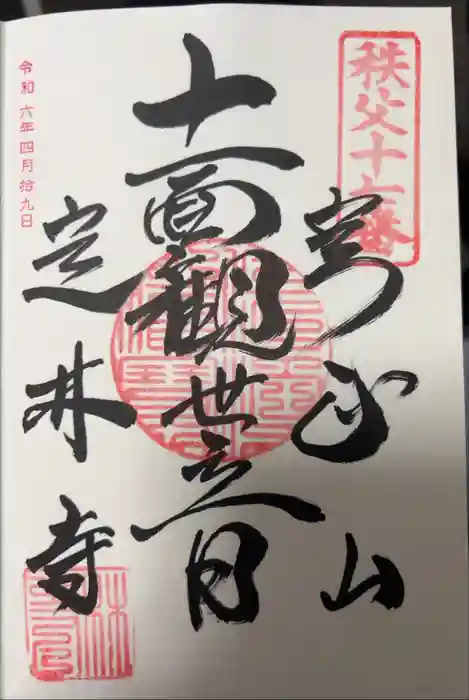 秩父十七番
実正山
十一面觀世音
定林寺
令和六年四月拾九日